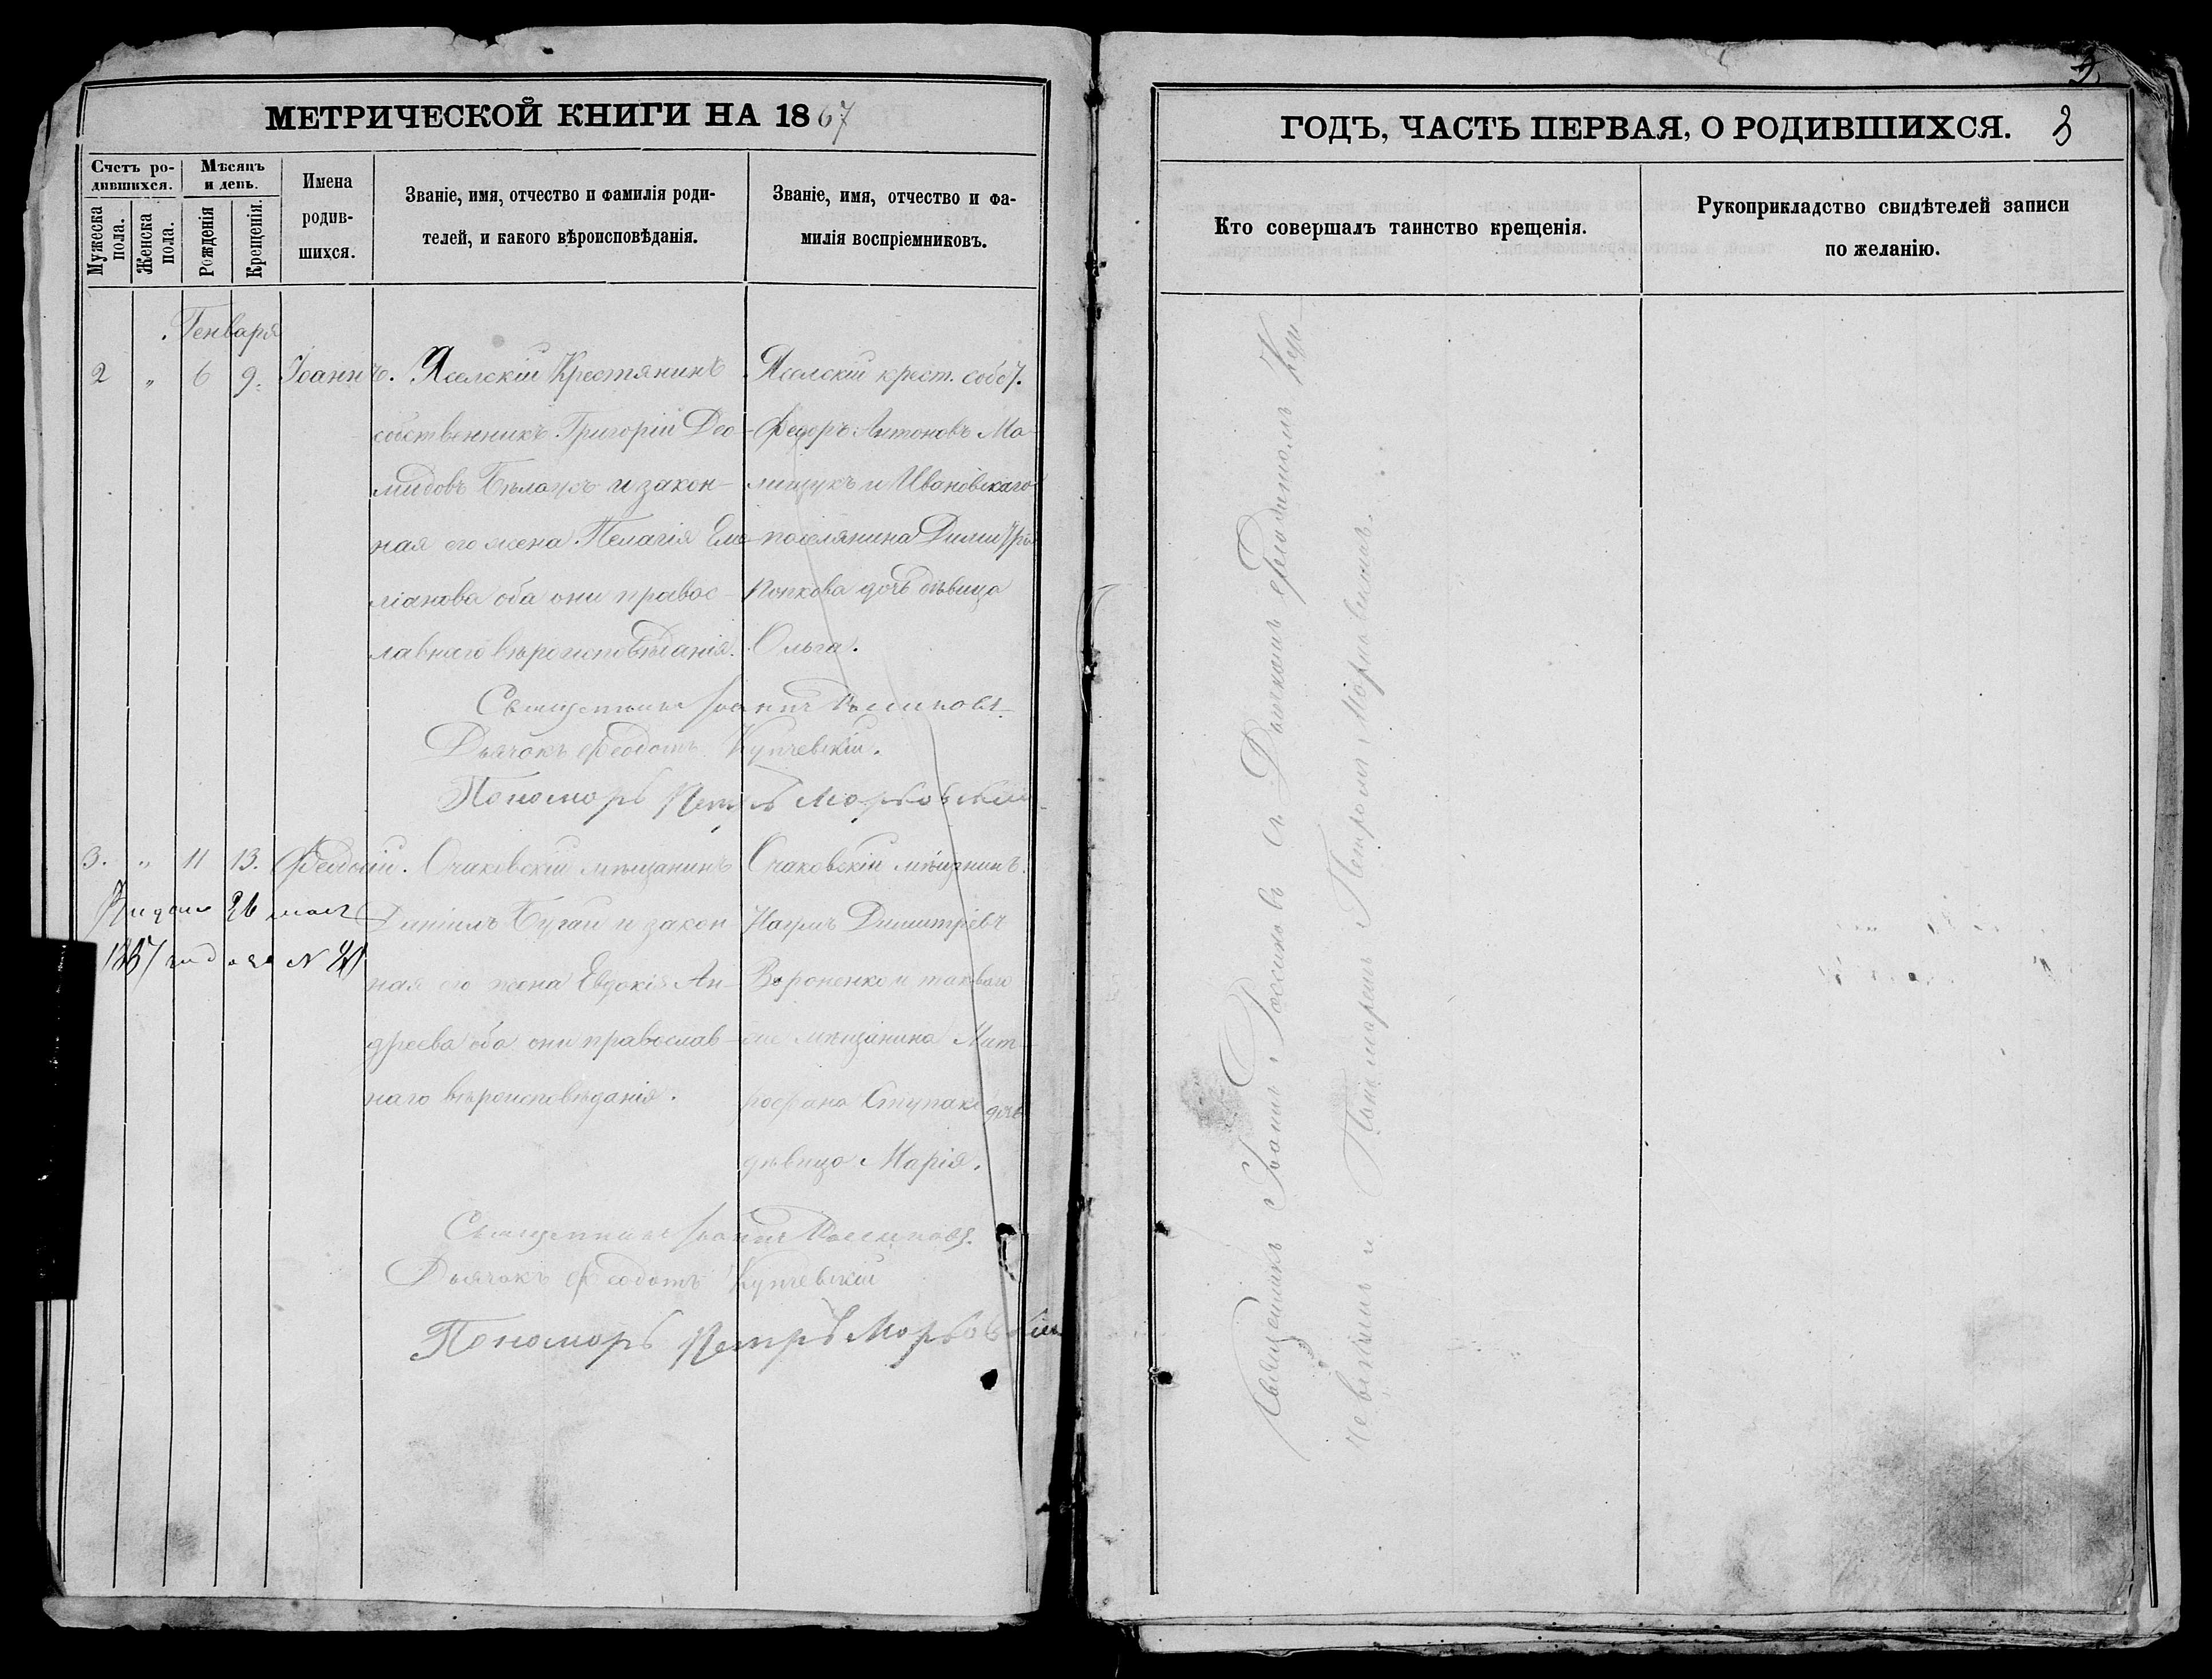 МЕТРИЧЕСКОЙ КНИГИ НА 1867
Счетъ ро-
дившихся.
Мужеска
пола.
Женска
пола.
Мѣсяцъ
и день.
Рожденія
Крещенія.
Имена
родив-
шихся.
Званіе, имя, отчество и фамилія роди-
телей, и какого вѣроисповѣданія.
Званіе, имя, отчество и фа-
милія воспріемниковъ.
Генваря
2 " 6 9. Іоаннъ.
Яселскій Крестянинъ
собственникъ Григорій Део-
мидовъ Бѣлоусъ и закон-
ная его жена Пелагія Еме-
ліанова оба они правос-
лавнаго вѣроисповѣданія.
Яселскій крест. собст.
Федоръ Антоновъ Ма-
лищукъ и Ивановскаго
поселянина Димитрія
Попкова дочь дѣвица
Ольга.
Священникъ Іоаннъ Россиновъ
Дьячокъ Феодотъ Купчевскій.
Пономорь Петръ Морковскій
3. " 11 13. Феодосій.
Очаковскій мѣщанинъ
Даніилъ Бугай и закон-
ная его жена Евдокія Ан-
дреева оба они православ-
наго вѣроисповѣданія.
Очаковскій мѣщанинъ
Наумъ Димитріевъ
Вороненко и таковаго
же мѣщанина Мит-
рофана Ступака дочь
дѣвица Марія.
Выдано 26 мая
1887 года за № 21
Священникъ Іоаннъ Россиновъ.
Дьячокъ Феодотъ Купчевскій
Пономорь Петръ Морковскій
3
ГОДЪ, ЧАСТЬ ПЕРВАЯ, О РОДИВШИХСЯ. 3
Кто совершалъ таинство крещенія.
Рукоприкладство свидѣтелей записи
по желанію.
Священникъ Іоаннъ Россиновъ съ Дьячкомъ Феодотомъ Куп-
чевскимъ и Пономаремъ Петромъ Морковскимъ.